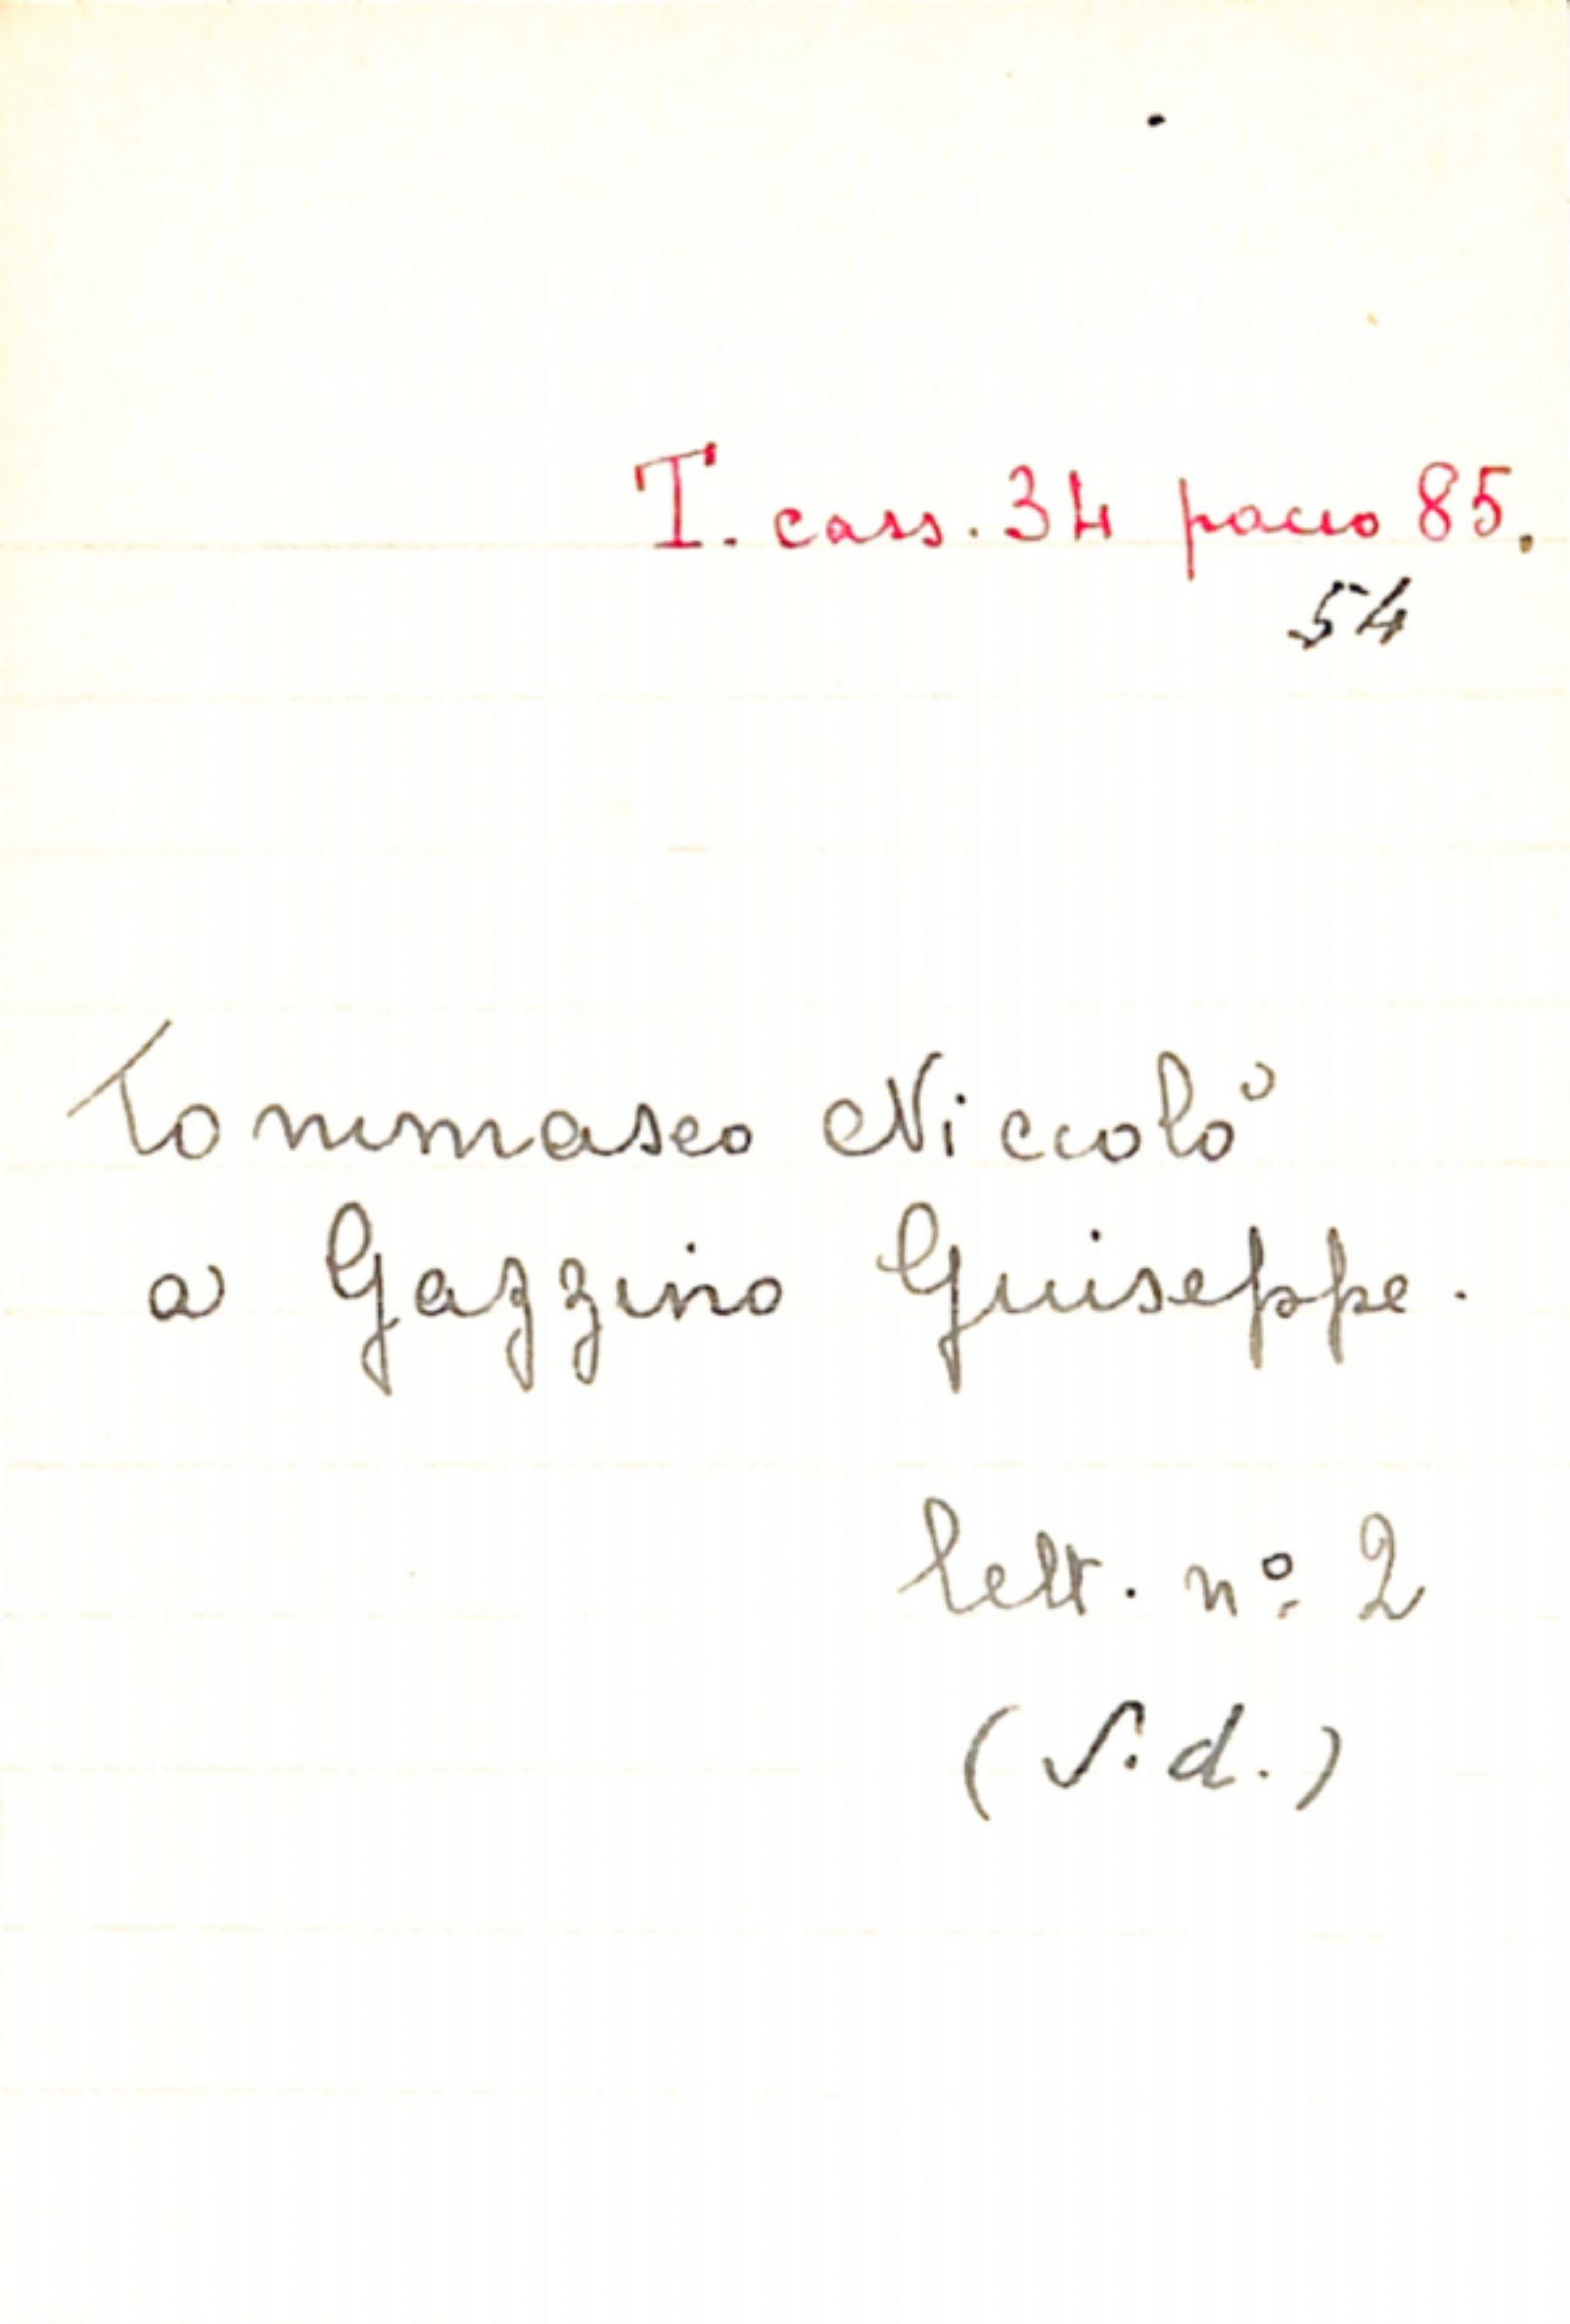 T. cass. 34 pacco 85.
54
Tommaseo Niccolò
a Gazzino Giuseppe.
lett. nº 2
(S. d.)